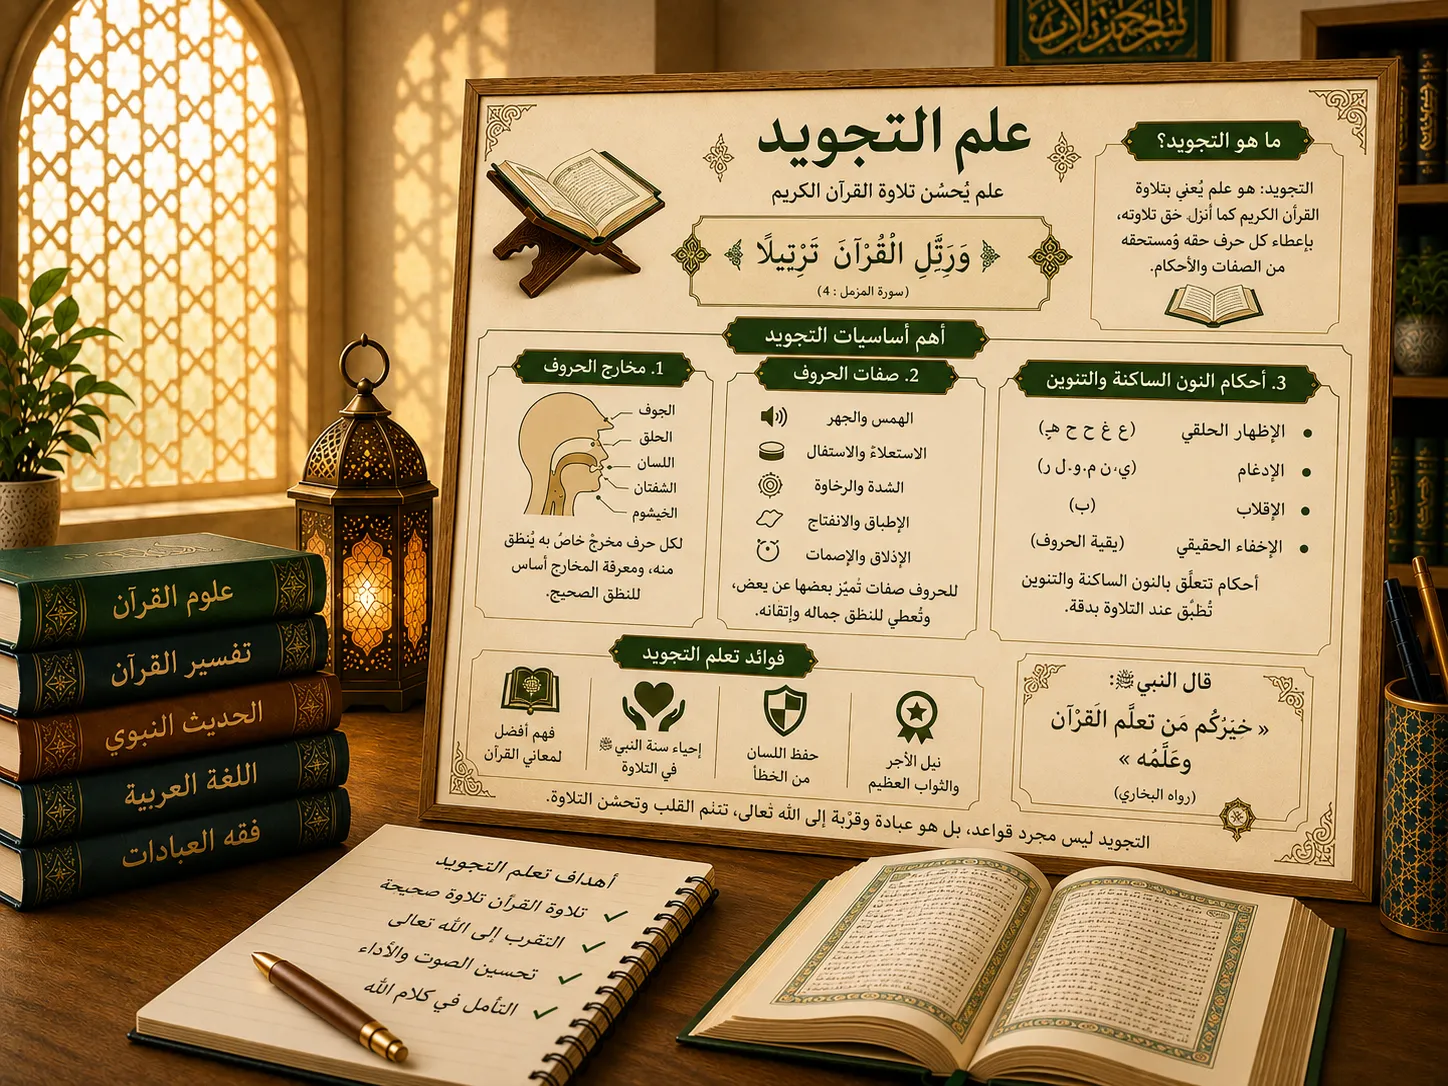 علم التجويد
علم يُحسُن تلاوة القرآن الكريم
وَرَتِّلِ الْقُرْآنَ تَرْتِيلًا
(سورة المزمل : 4)
ما هو التجويد؟
التجويد: هو علم يُعني بتلاوة
القرآن الكريم كما أنزل حق تلاوته،
بإعطاء كل حرف حقه ومُستحقه
من الصفات والأحكام.
أهم أساسيات التجويد
1. مخارج الحروف
الجوف
الحلق
اللسان
الشفتان
الخيشوم
لكل حرف مخرجْ خاصُ به يُنطق
منه، ومعرفة المخارج أساس
للنطق الصحيح.
2. صفات الحروف
الهمس والجهر
الاستعلاءُ والاستفال
الشدة والرخاوة
الإطباق والانفتاح
الإذلاق والإصمات
للحروف صفات تُميّز بعضها عن بعض،
وتُعطي للنطق جماله وإتقانه.
3. أحكام النون الساكنة والتنوين
الإظهار الحلقي (ع غ ح ح هـ)
الإدغام (ي،ن م.و.ل ر)
الإقلاب (ب)
الإخفاء الحقيقي (يقية الحروف)
أحكام تتعلَّق بالنون الساكنة والتنوين
تُطَبَّق عند التلاوة بدقة.
فوائد تعلم التجويد
نيل الأجر
والثواب العظيم
حفظ اللسان
من الخطأ
إحياء سنة النبي ﷺ
في التلاوة
فهم أفضل
لمعاني القرآن
قال النبي ﷺ:
« خيَرُكُم مَن تعلَّم القَرْآن
وعَلَّمُه »
(رواه البخاري)
التجويد ليس مجرد قواعد، بل هو عبادة وقرْبة إلى الله تُعالى، تتنم القلب وتحشن التلاوة.
علوم القرآن
تفسير القرآن
الحديث النبوي
اللغة العربية
فقه العبادات
أهداف تعلم التجويد
تلاوة القرأن تلاوة صحيحة
التقرب إلى الله تعالى
تحسين الصوت والأداء
التأمل في كلام الله